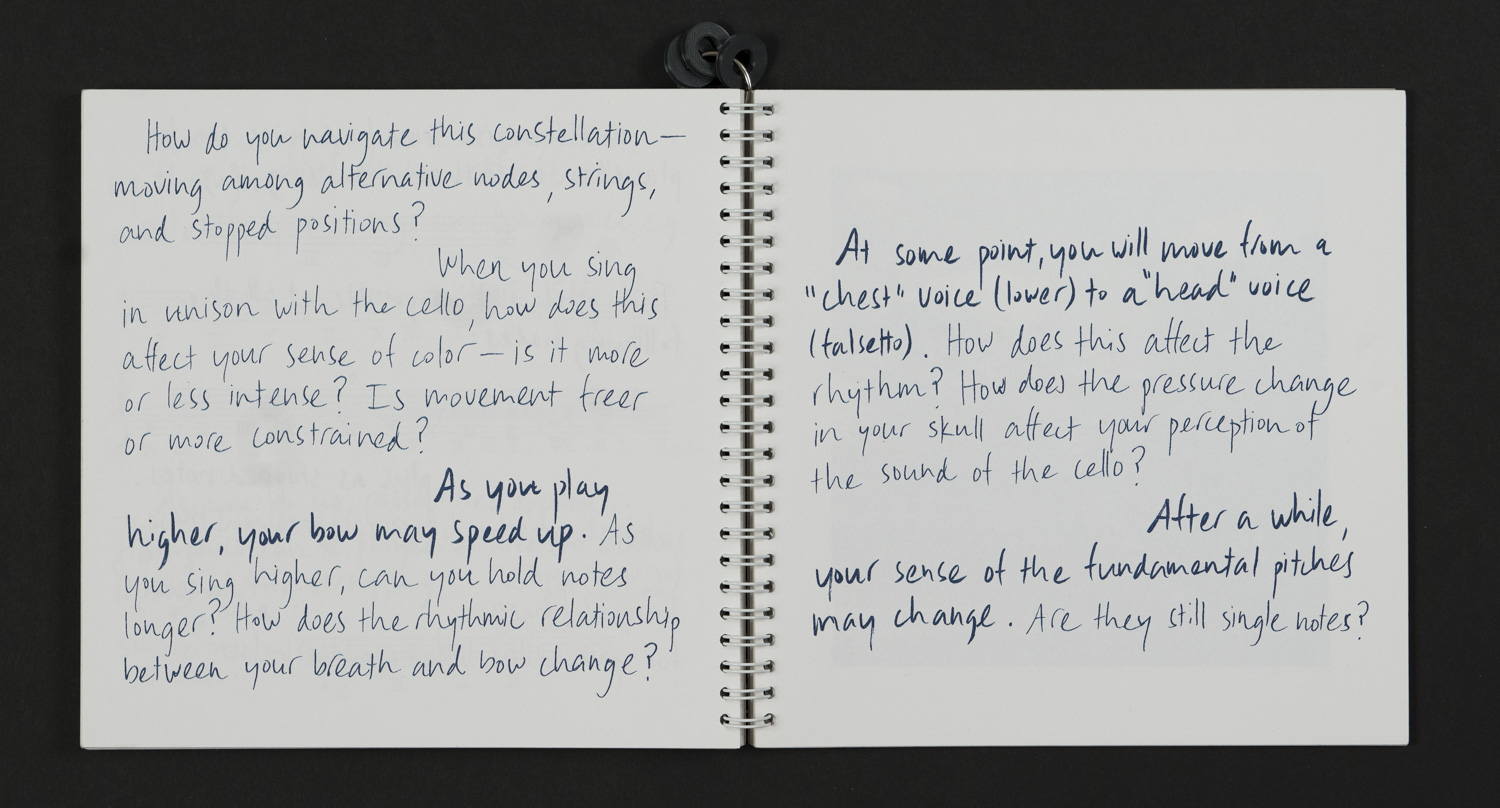 How do you navigate this constellation—
moving among alternative nodes, strings,
and stopped positions?
When you sing
in unison with the cello, how does this
affect your sense of color—is it more
or less intense? Is movement freer
or more constrained?
As you play
higher, your bow may speed up. As
you sing higher, can you hold notes
longer? How does the rhythmic relationship
between your breath and bow change?
At some point, you will move from a
"chest" voice (lower) to a "head" voice
(falsetto). How does this affect the
rhythm? How does the pressure change
in your skull affect your perception of
the sound of the cello?
After a while,
your sense of the fundamental pitches
may change. Are they still single notes?